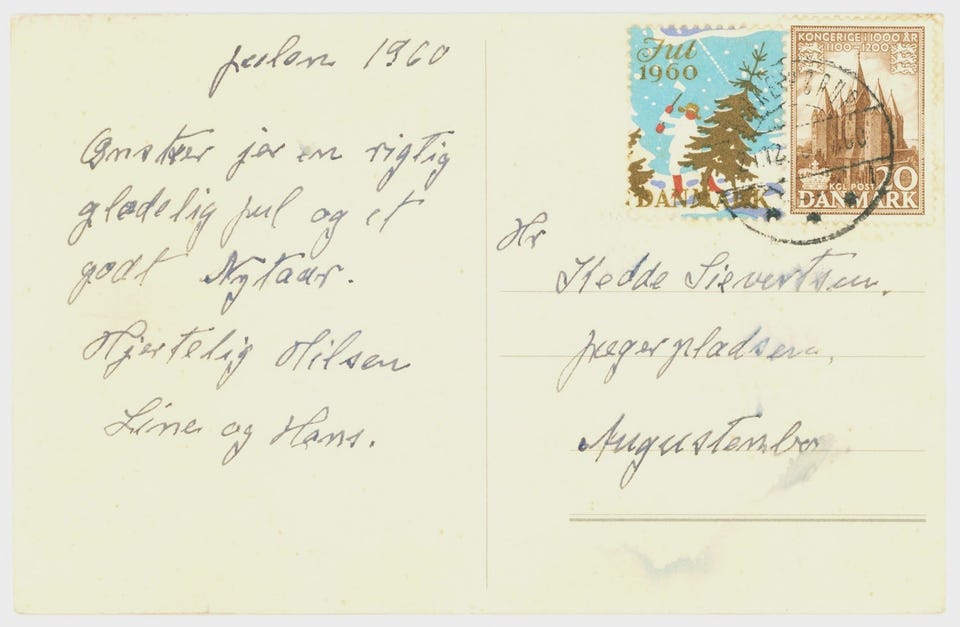 Julen 1960
Ønsker jer en rigtig
glædelig jul og et
godt Nytaar.
Hjertelig Hilsen
Line og Hans.
Jul
1960
DANMARK
KONGERIGE I 1000 ÅR
1100-1200
KGL POST
20
DANMARK
Hr
Kedde Sievertsen.
Jægerpladsen.
Augustenborg